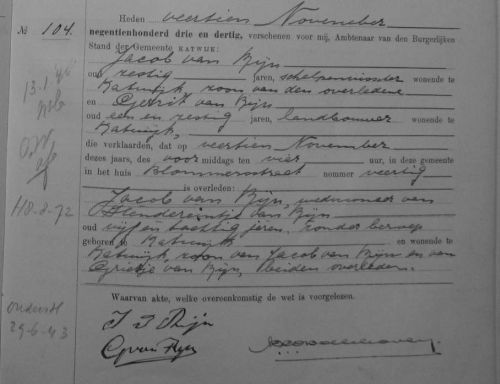 Heden veertien November
No. 104.
negentienhonderd drie en dertig, verschenen voor mij, Ambtenaar van den Burgerlijken
Stand der Gemeente KATWIJK:
Jacob van Rijn
oud zestig jaren, schelpenvisscher wonende te
Katwijk, zoon van den overledene
en Gerrit van Rijn
oud een en zestig jaren, landbouwer wonende te
Katwijk,
die verklaarden, dat op veertien November
dezes jaars, des voor middags ten vier uur, in deze gemeente
in het huis Blommersstraat nommer veertig
is overleden:
Jacob van Rijn, weduwnaar van
van Rijn
oud vijf en tachtig jaren, zonder beroep
geboren te Katwijk en wonende te
Katwijk, zoon van Jacob van Rijn en van
Grietje van Rijn, beiden overleden.
Waarvan akte, welke overeenkomstig de wet is voorgelezen.
J J Rijn
G van Rijn
118-8-72
29-6-43